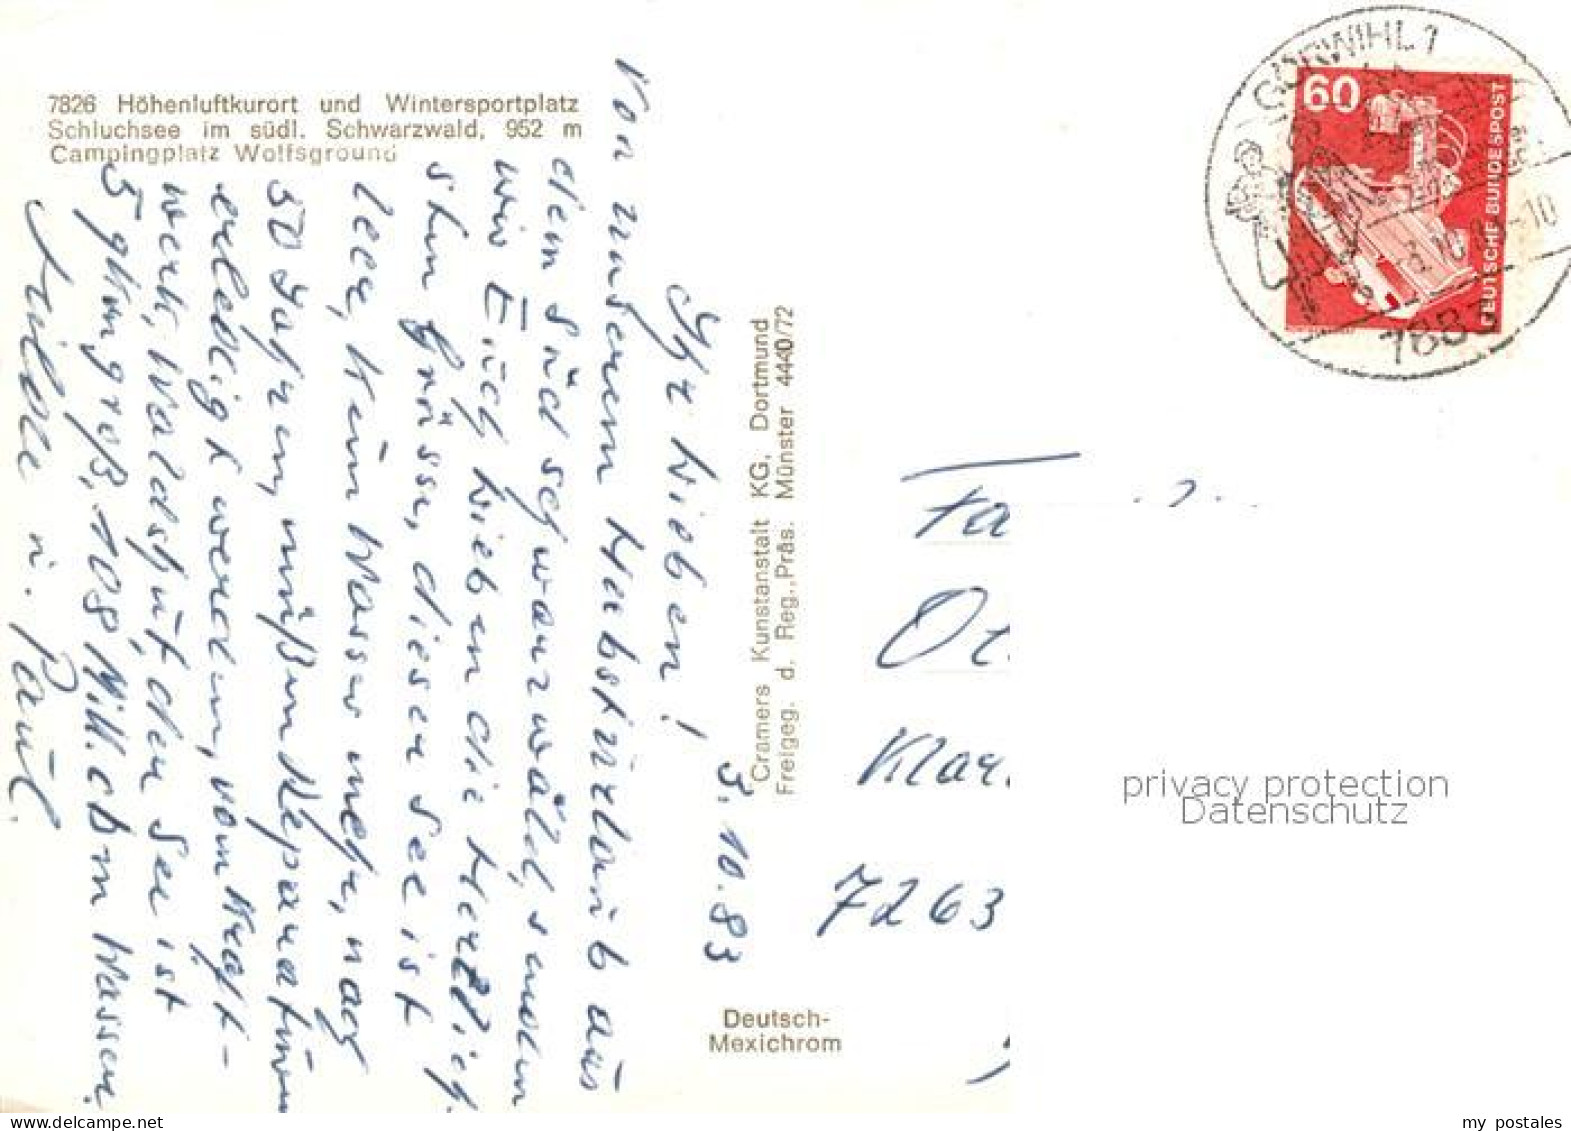 7826 Höhenluftkurort und Wintersportplatz
Schluchsee im südl. Schwarzwald, 952 m
Campingplatz Wolfsground
3.10.83
Ihr Lieben!
Von unserem Herbsturlaub aus
dem Südschwarzwald, senden
wir Euch Lieben die Herzlich
sten Grüsse, dieser See ist
leer, kein Wasser mehr, nach
50 Jahren, müßen Reparaturen
erledigt werden, vom Kraft-
werk, Waldshut, der See ist
5 qkm groß, 108 Mill. cbm Wasser.
u. Paul.
Cramers Kunstanstalt KG, Dortmund
Freigeg. d. Reg. Präs. Münster 4440/72
Deutsch-
Mexichrom
GÖRWIHL 1
60
DEUTSCHE BUNDESPOST
Fa
Ot
Klar
7263
privacy protection
Datenschutz
www.delcampe.net
my_postales